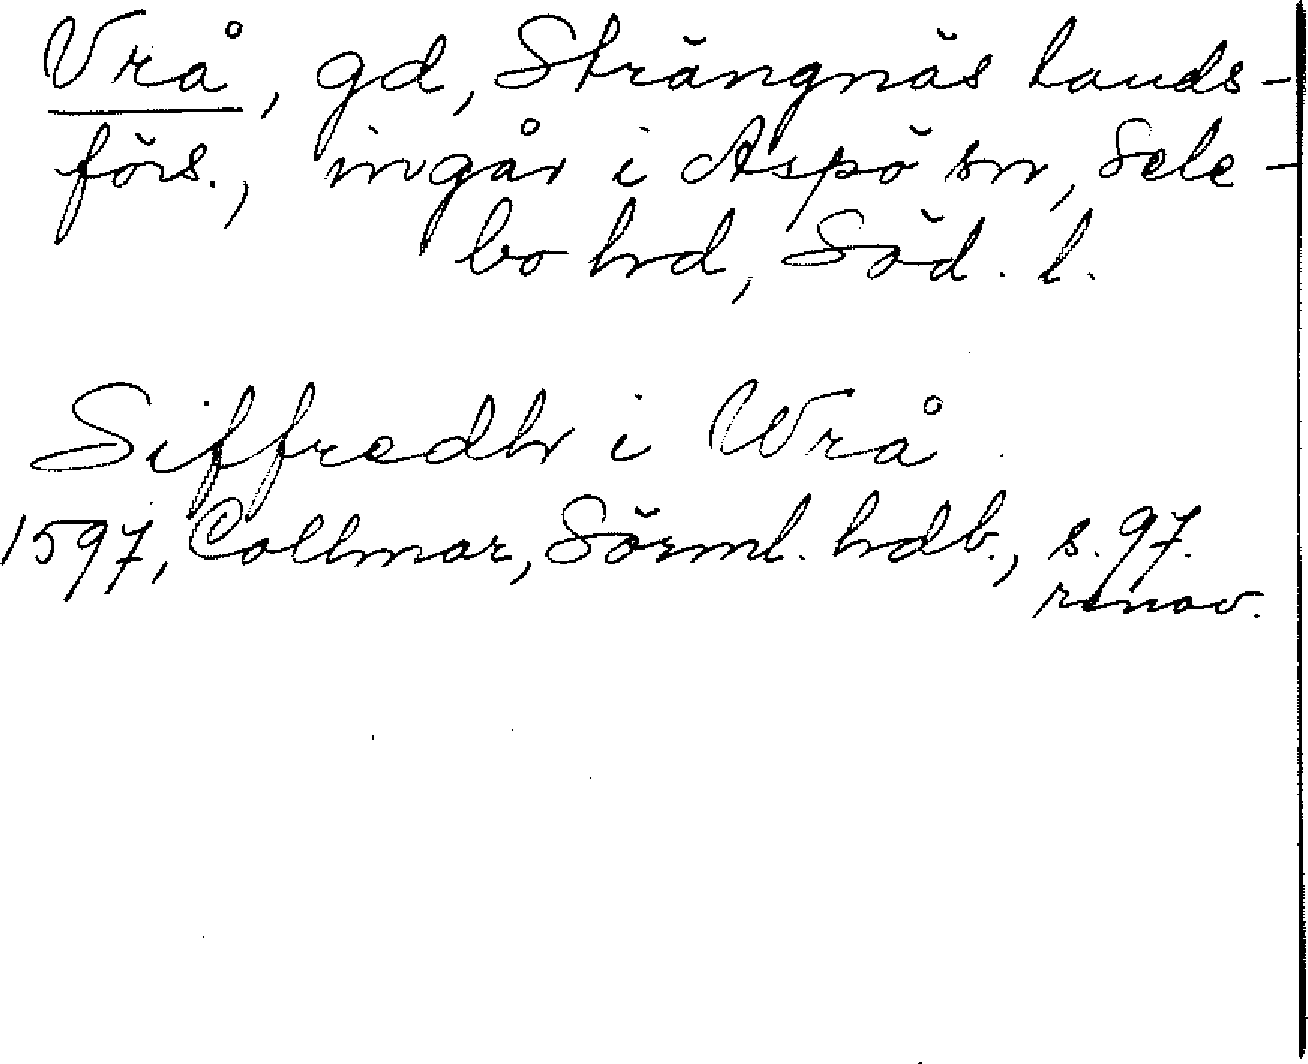 Vrå, gd, Strängnäs lands-
förs., ingår i Aspö sn, Sele-
bo hd, Söd. l.
Siffredh i Wrå
1597, Collmar, Sörml. hdb., s. 97.
renov.